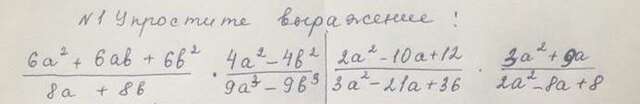 №1 Упростите выражение:
(6a² + 6ab + 6b²)/(8a + 8b) · (4a² - 4b²)/(9a³ - 9b³) | (2a² - 10a + 12)/(3a² - 21a + 36) · (3a² + 9a)/(2a² - 8a + 8)